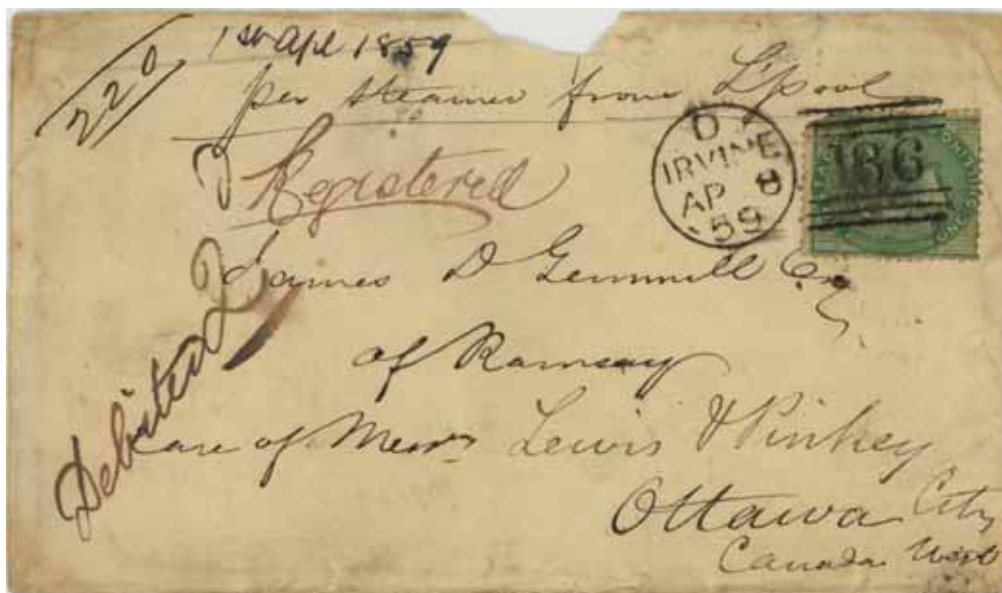 220
1st Apl 1859
per steamer from L'pool
Registered
D
IRVINE
AP 8
59
186
ONE SHILLING
James D Gemmill Esq
of Ramsay
Care of Messrs Lewis & Pinhey
Ottawa City
Canada West
Debited 2